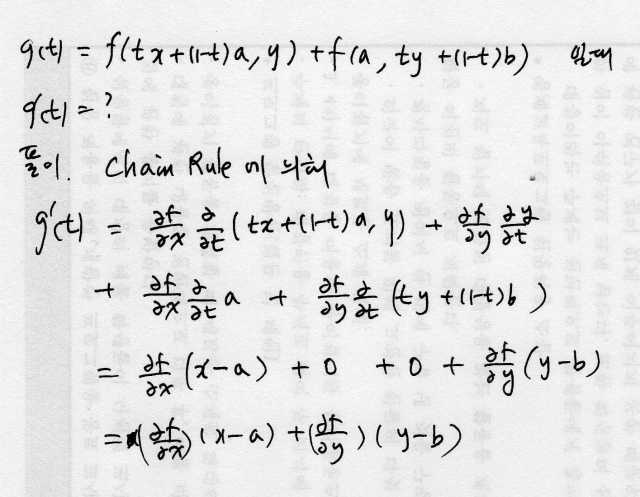 g(t) = f(tx+(1-t)a, y) + f(a, ty+(1-t)b) 일때
g'(t) = ?
풀이. Chain Rule 에 의해
g'(t) = ∂f/∂x ∂/∂t (tx+(1-t)a, y) + ∂f/∂y ∂y/∂t
+ ∂f/∂x ∂/∂t a + ∂f/∂y ∂/∂t (ty+(1-t)b)
= ∂f/∂x (x-a) + 0 + 0 + ∂f/∂y (y-b)
= (∂f/∂x)(x-a) + (∂f/∂y)(y-b)